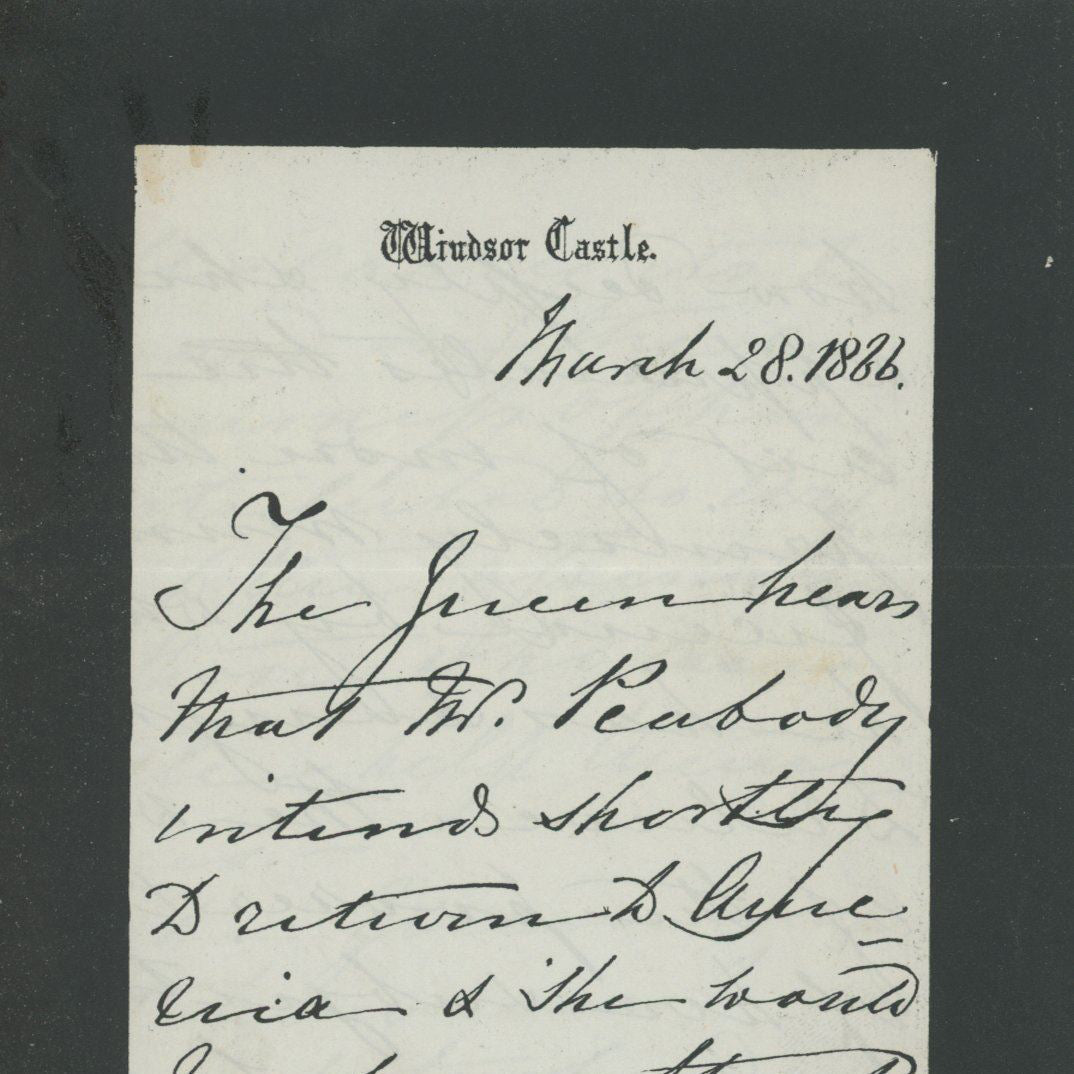 Windsor Castle.
March 28. 1866.
The Queen hears
that Mr. Peabody
intends shortly
to return to Ame-
rica & she would